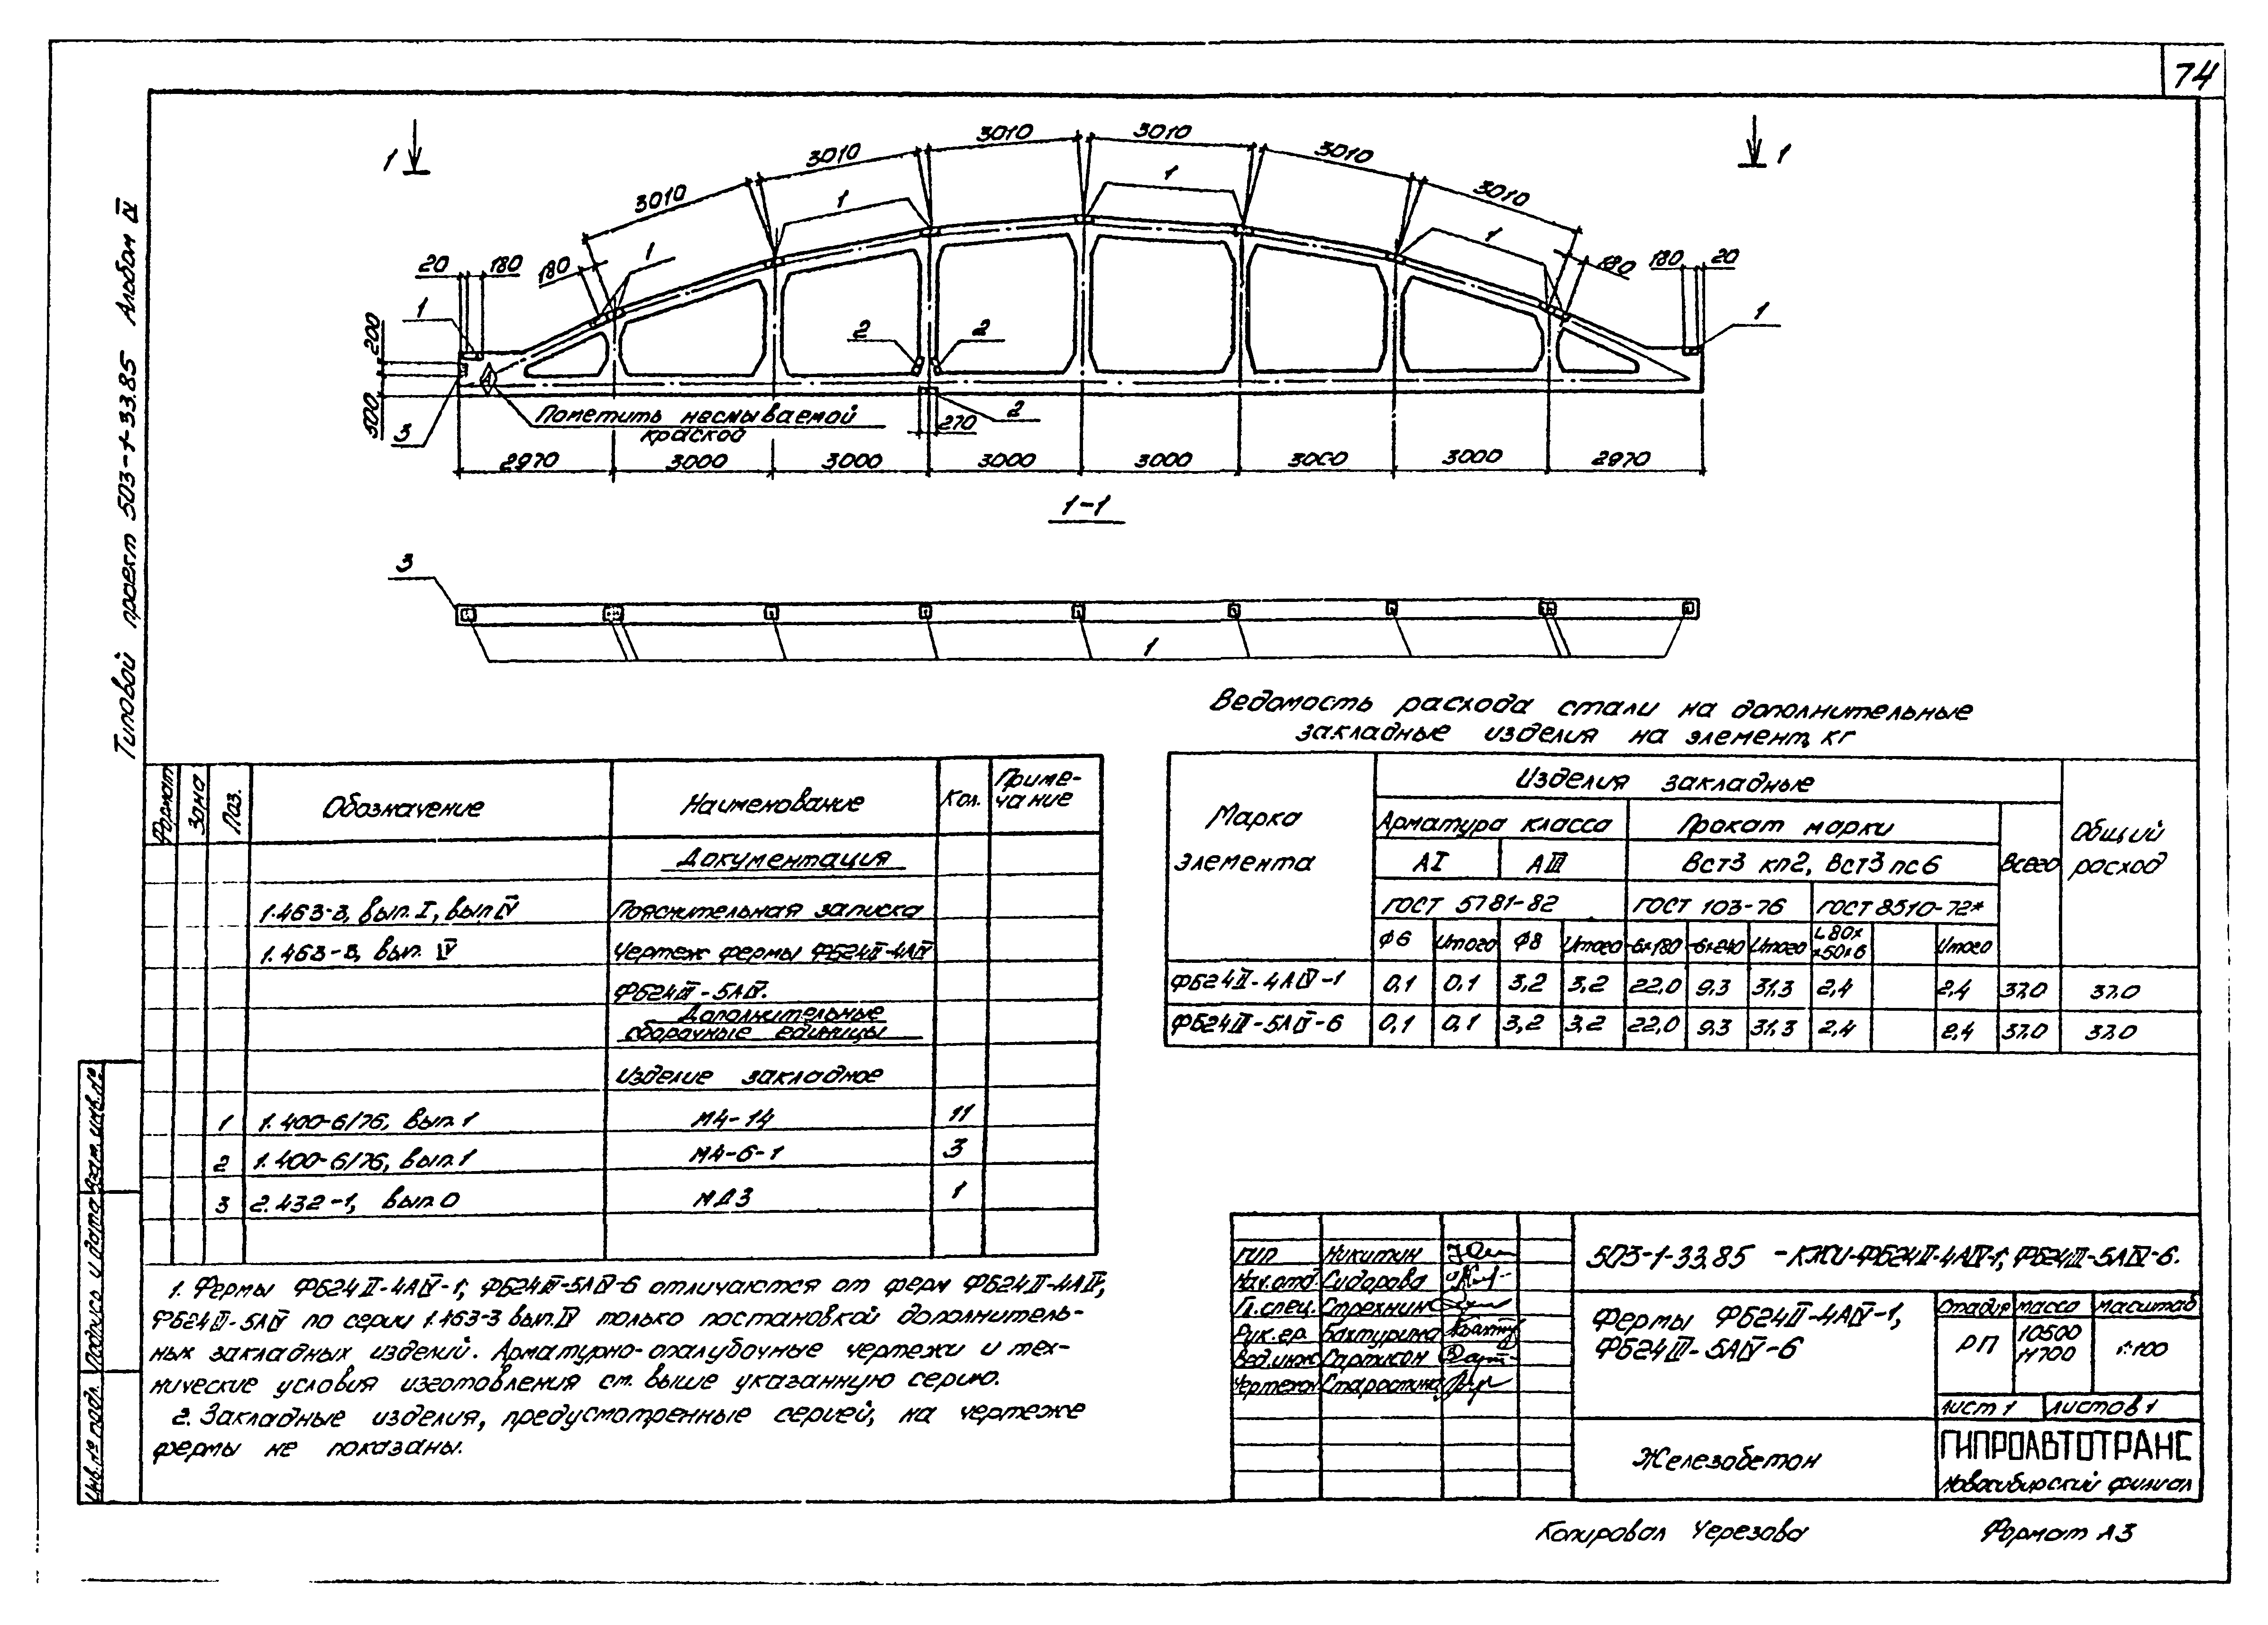 74
Типовой проект 503-1-33.85 Альбом IV
1 1
3010 3010 3010 3010 3010 3010
20 180 180 180 180 20
1 1 1 1 1 1
200
500
3
2 2 2
Пометить несмываемой
краской
270
2970 3000 3000 3000 3000 3000 3000 2970
1-1
3
1
Ведомость расхода стали на дополнительные
закладные изделия на элемент, кг
Марка элемента
Изделия закладные
Общий расход
Арматура класса Прокат марки Всего
АI АIII Вст3 кп2, Вст3 пс6
ГОСТ 5781-82 ГОСТ 103-76 ГОСТ 8510-72*
Ф6 Итого Ф8 Итого -6x180 -6x240 Итого L80x x50x6 Итого
ФБ24II-4АIV-1 0,1 0,1 3,2 3,2 22,0 9,3 31,3 2,4 2,4 37,0 37,0
ФБ24III-5АIV-6 0,1 0,1 3,2 3,2 22,0 9,3 31,3 2,4 2,4 37,0 37,0
Формат Зона Поз. Обозначение Наименование Кол. Приме-
чание
Документация
1.463-3, вып. I, вып IV Пояснительная записка
1.463-3, вып. IV Чертеж фермы ФБ24II-4АIV
ФБ24III-5АIV.
Дополнительные
сборочные единицы
Изделие закладное
1 1.400-6/76, вып. 1 М4-14 11
2 1.400-6/76, вып. 1 М4-6-1 3
3 2.432-1, вып. 0 МД3 1
1. Фермы ФБ24II-4АIV-1; ФБ24III-5АIV-6 отличаются от ферм ФБ24II-4АIV,
ФБ24III-5АIV по серии 1.463-3 вып. IV только постановкой дополнитель-
ных закладных изделий. Арматурно-опалубочные чертежи и тех-
нические условия изготовления см. выше указанную серию.
2. Закладные изделия, предусмотренные серией, на чертеже
фермы не показаны.
Инв. № подл. Подпись и дата Взам. инв. №
ГИП Никитин
Нач. отд. Сидорова
Гл. спец. Стрехнин
Рук. гр. Бахтурина
Вед. инж. Сартисон
Чертежн Старостина
503-1-33.85 -КЖИ-ФБ24II-4АIV-1; ФБ24III-5АIV-6.
Фермы ФБ24II-4АIV-1,
ФБ24III-5АIV-6
Стадия Масса Масштаб
РП 10500
11700 1:100
Лист 1 Листов 1
Железобетон
ГИПРОАВТОТРАНС
Новосибирский филиал
Копировал Черезова Формат А3